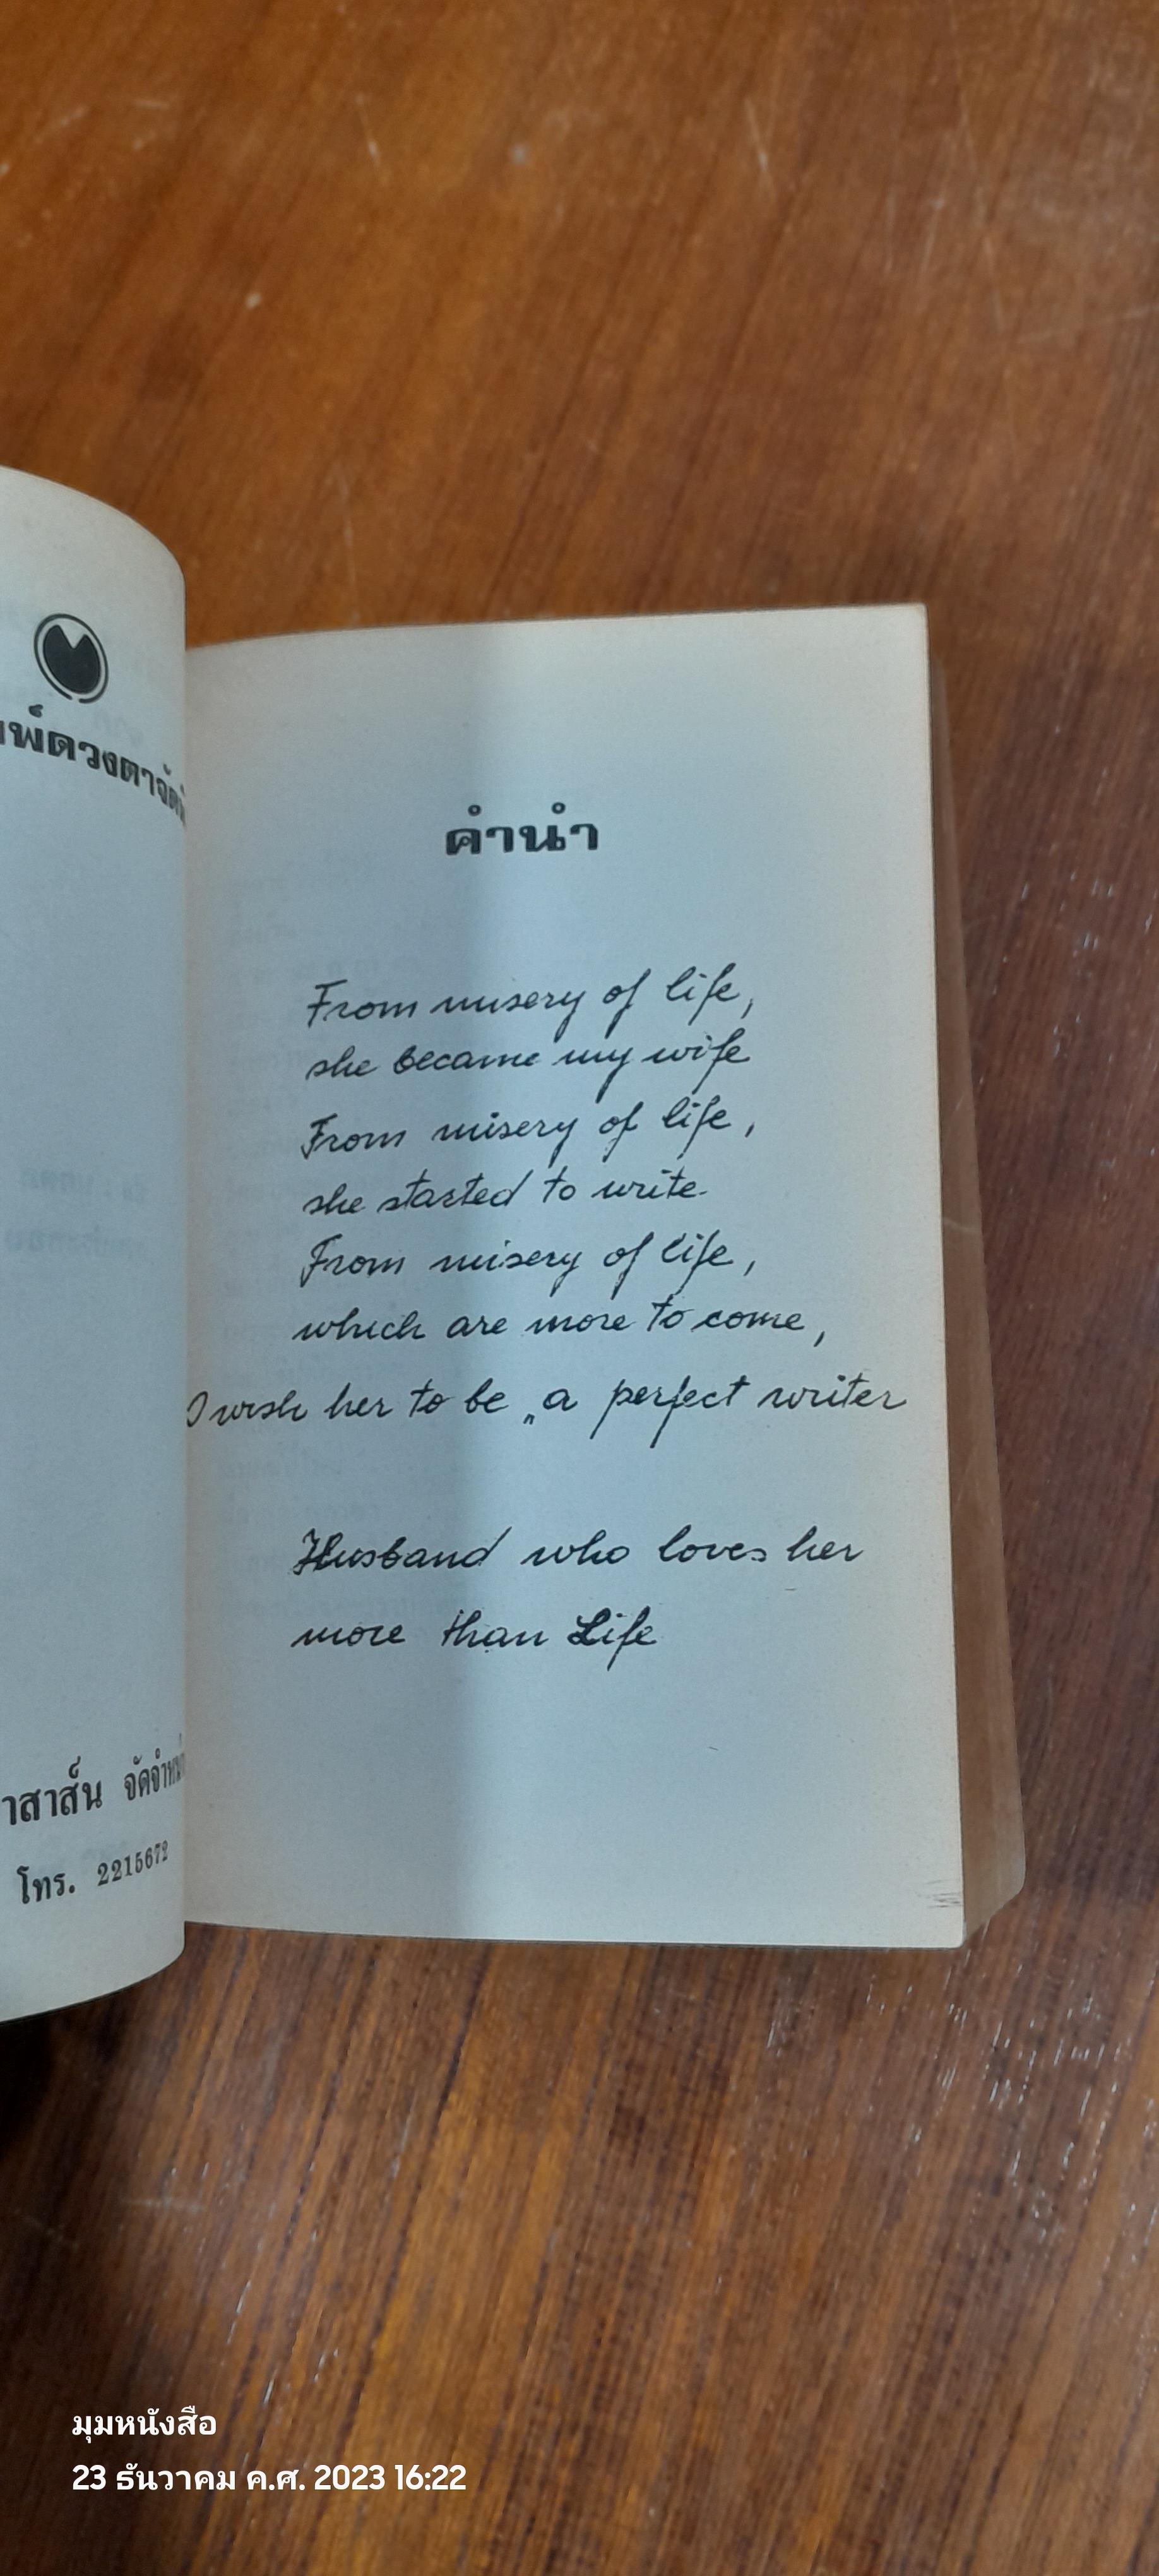 คำนำ
From misery of life,
she became my wife
From misery of life,
she started to write.
From misery of life,
which are more to come,
I wish her to be „a perfect writer
Husband who loves her
more than Life
โทร. 2215672
มุมหนังสือ
23 ธันวาคม ค.ศ. 2023 16:22